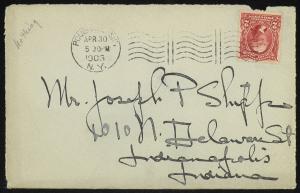 APR 30
5 30 PM
1903
N.Y.
Mr. Joseph P Shipp
1010 N. Delaware St
Indianapolis
Indiana